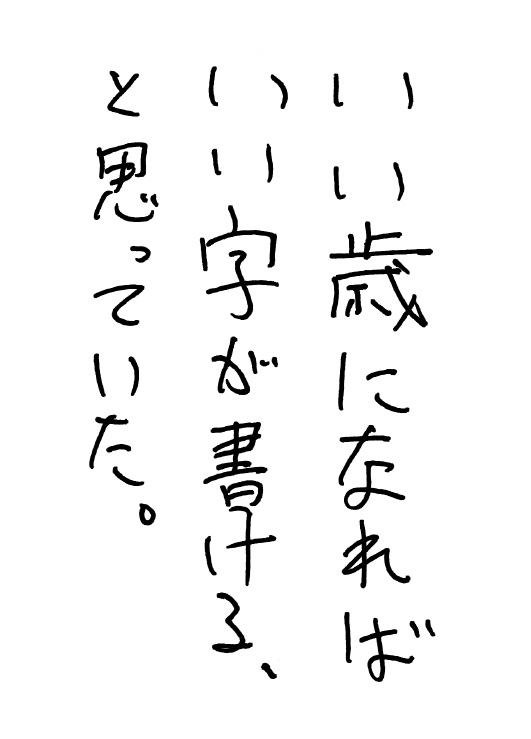 いい歳になれば
いい字が書ける、
と思っていた。